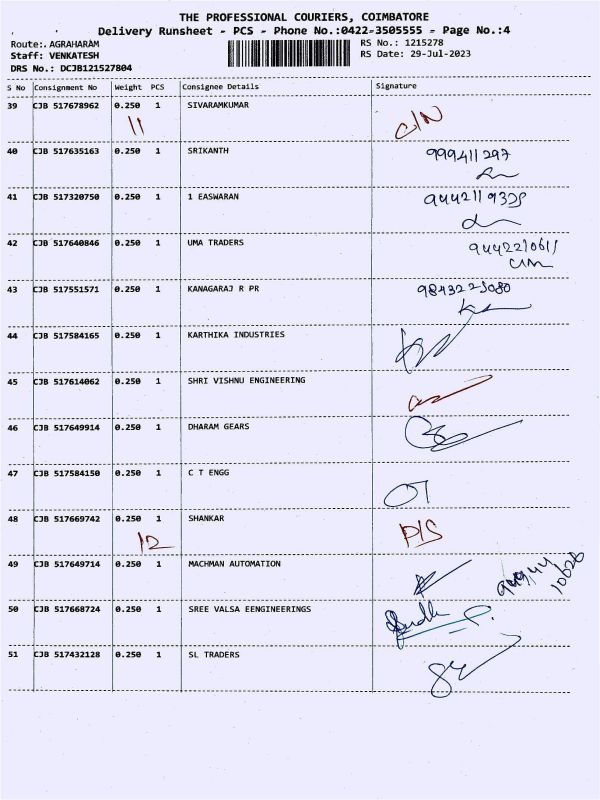 THE PROFESSIONAL COURIERS, COIMBATORE
Delivery Runsheet - PCS - Phone No.:0422-3505555 - Page No.:4
Route:. AGRAHARAM RS No.: 1215278
Staff: VENKATESH RS Date: 29-Jul-2023
DRS No.: DCJB121527804
S No Consignment No Weight PCS Consignee Details Signature
39 CJB 517678962 0.250 1 SIVARAMKUMAR
11 C/N
40 CJB 517635163 0.250 1 SRIKANTH 999411297
41 CJB 517320750 0.250 1 1 EASWARAN
42 CJB 517640846 0.250 1 UMA TRADERS
43 CJB 517551571 0.250 1 KANAGARAJ R PR
44 CJB 517584165 0.250 1 KARTHIKA INDUSTRIES
45 CJB 517614062 0.250 1 SHRI VISHNU ENGINEERING
46 CJB 517649914 0.250 1 DHARAM GEARS
47 CJB 517584150 0.250 1 C T ENGG
48 CJB 517669742 0.250 1 SHANKAR
12 P/S
49 CJB 517649714 0.250 1 MACHMAN AUTOMATION
50 CJB 517668724 0.250 1 SREE VALSA EENGINEERINGS
51 CJB 517432128 0.250 1 SL TRADERS